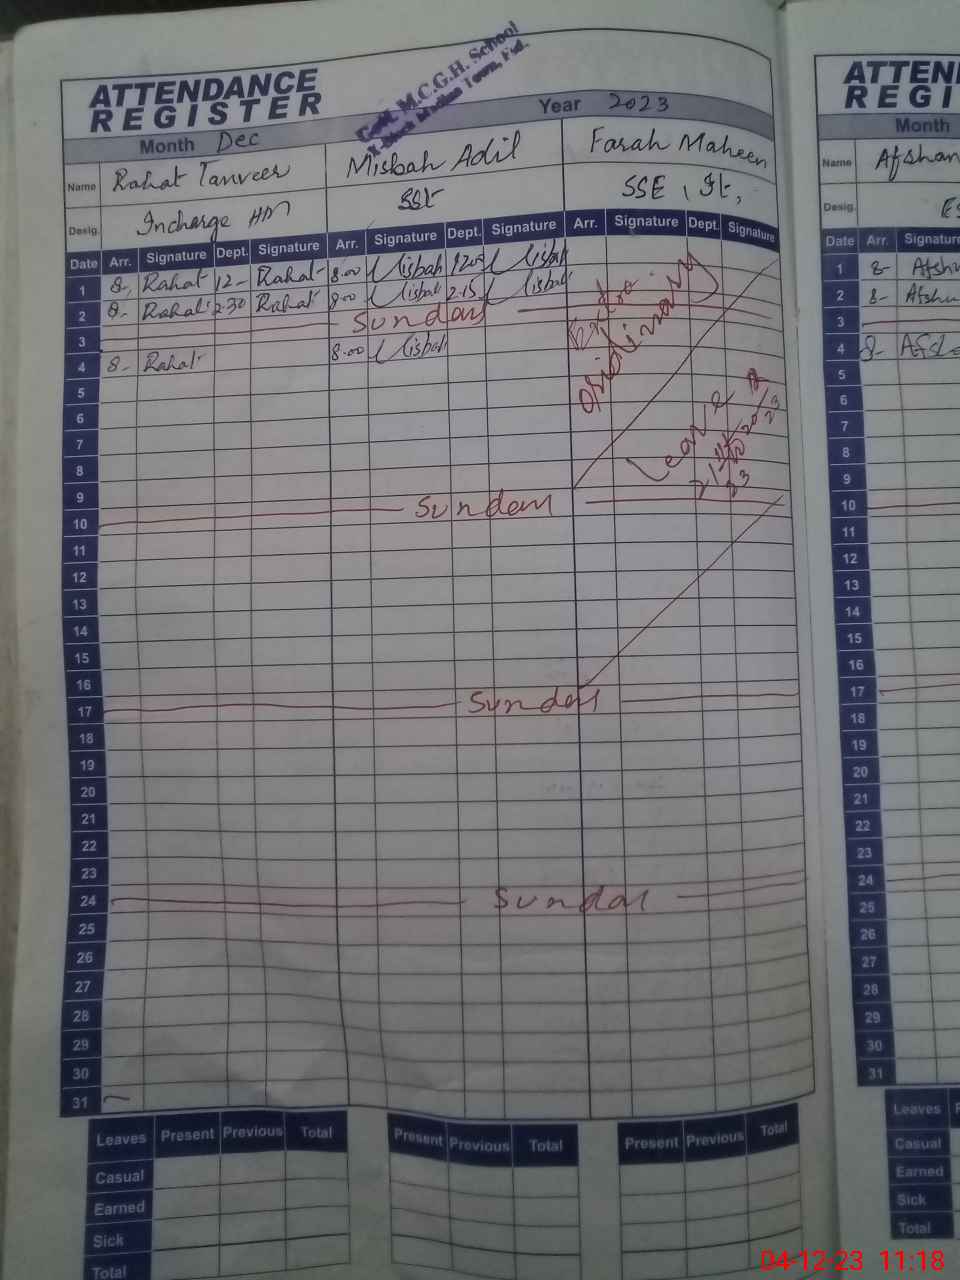 Govt. M.C.G.H. School
ATTENDANCE
REGISTER
Month Dec
Year 2023
Name Rahat Tanveer Misbah Adil Farah Maheen
Desig. Incharge HM SSt SSE, It,
Date Arr. Signature Dept. Signature Arr. Signature Dept. Signature Arr. Signature Dept. Signature
1 8- Rahat 12- Rahat 8.00 Misbah 12.00 Misbah
2 8- Rahat 2.30 Rahat 8.00 Misbah 2.15 Misbah
3 Sunday
4 8- Rahat 8.00 Misbah
Extra
ordinary
Leave
5
6
7
8
9
10 Sunday
11
12
13
14
15
16
17 Sunday
18
19
20
21
22
23
24 Sunday
25
26
27
28
29
30
31
Leaves Present Previous Total Present Previous Total Present Previous Total
Casual
Earned
Sick
Total
ATTEN
REGI
Month
Name Afshan
Desig. ES
Date Arr. Signature
1 8- Afshu
2 8- Afshu
3
4 8- Afsh
5
6
7
8
9
10
11
12
13
14
15
16
17
18
19
20
21
22
23
24
25
26
27
28
29
30
31
Leaves
Casual
Earned
Sick
Total
04-12-23 11:18